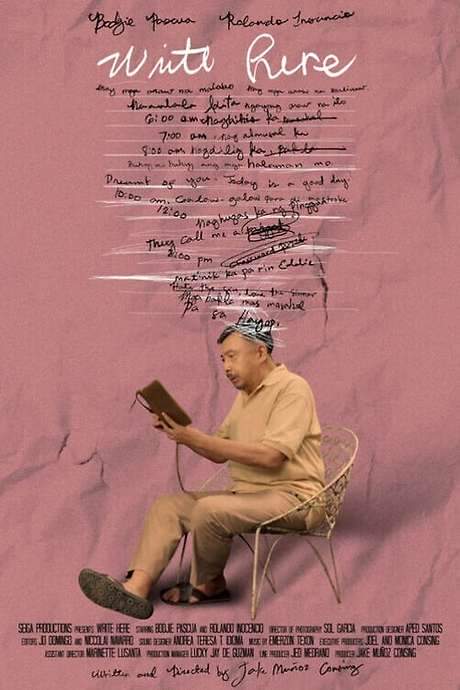 Bodjie Pascua Rolando Inocencio
Write Here
May mga araw na malabo May mga araw na
Naaalala kita ngayong araw na ito
6:00 am Nagdilig ka
7:00 am, nag almusal ka
8:00 am Nagdilig ka,
ang mga halaman mo.
Dreamt of you. Today is a good day.
10:00 am, Galaw-galaw para di ma stroke
12:00 Naghugas ka ng pinggan
They call me a
2:00 pm
matinik ka pa rin Eddie
Hate the sin, love the sinner
Mga bakla mas masahol
pa sa Hayop.
SEIGA PRODUCTIONS PRESENTS WRITE HERE STARRING BODJIE PASCUA AND ROLANDO INOCENCIO DIRECTOR OF PHOTOGRAPHY SOL GARCIA PRODUCTION DESIGNER APED SANTOS
EDITORS JO DOMINGO AND NICCOLAI NAVARRO SOUND DESIGNER ANDREA TERESA T IDIOMA MUSIC BY EMERZON TEXON EXECUTIVE PRODUCERS JOEL AND MONICA CONSING
ASSISTANT DIRECTOR MARINETTE LUSANTA PRODUCTION MANAGER LUCKY JAY DE GUZMAN LINE PRODUCER JED MEDRANO PRODUCER JAKE MUÑOZ CONSING
Written and Directed by Jake Muñoz Consing